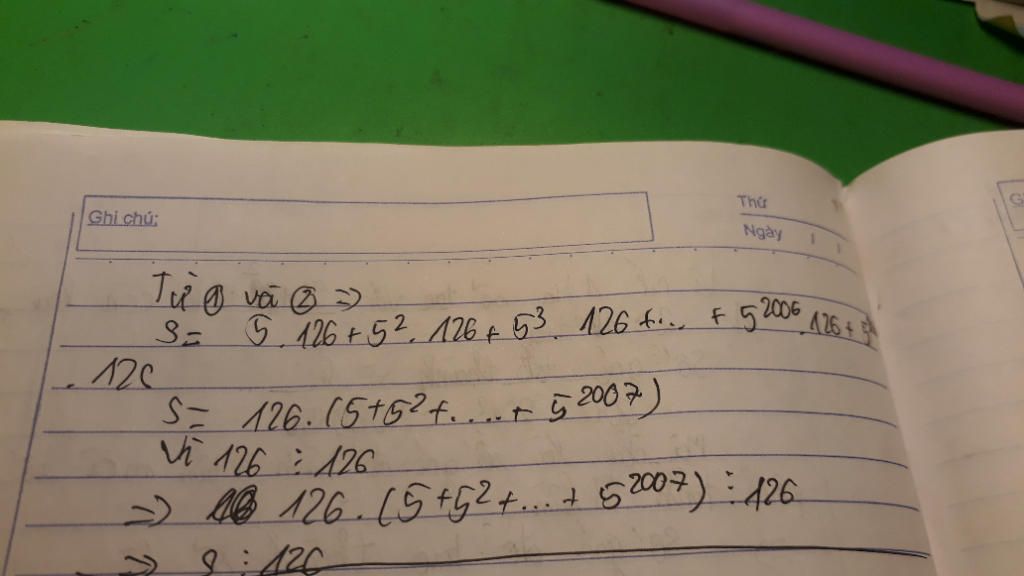 Ghi chú:
Thứ
Ngày
Từ ① và ② =>
S = 5 . 126 + 5² . 126 + 5³ . 126 + ... + 5²⁰⁰⁶ . 126 +
. 126
S = 126 . (5 + 5² + .... + 5²⁰⁰⁷)
Vì 126 ⋮ 126
=> 126 . (5 + 5² + ... + 5²⁰⁰⁷) ⋮ 126
=> S ⋮ 126